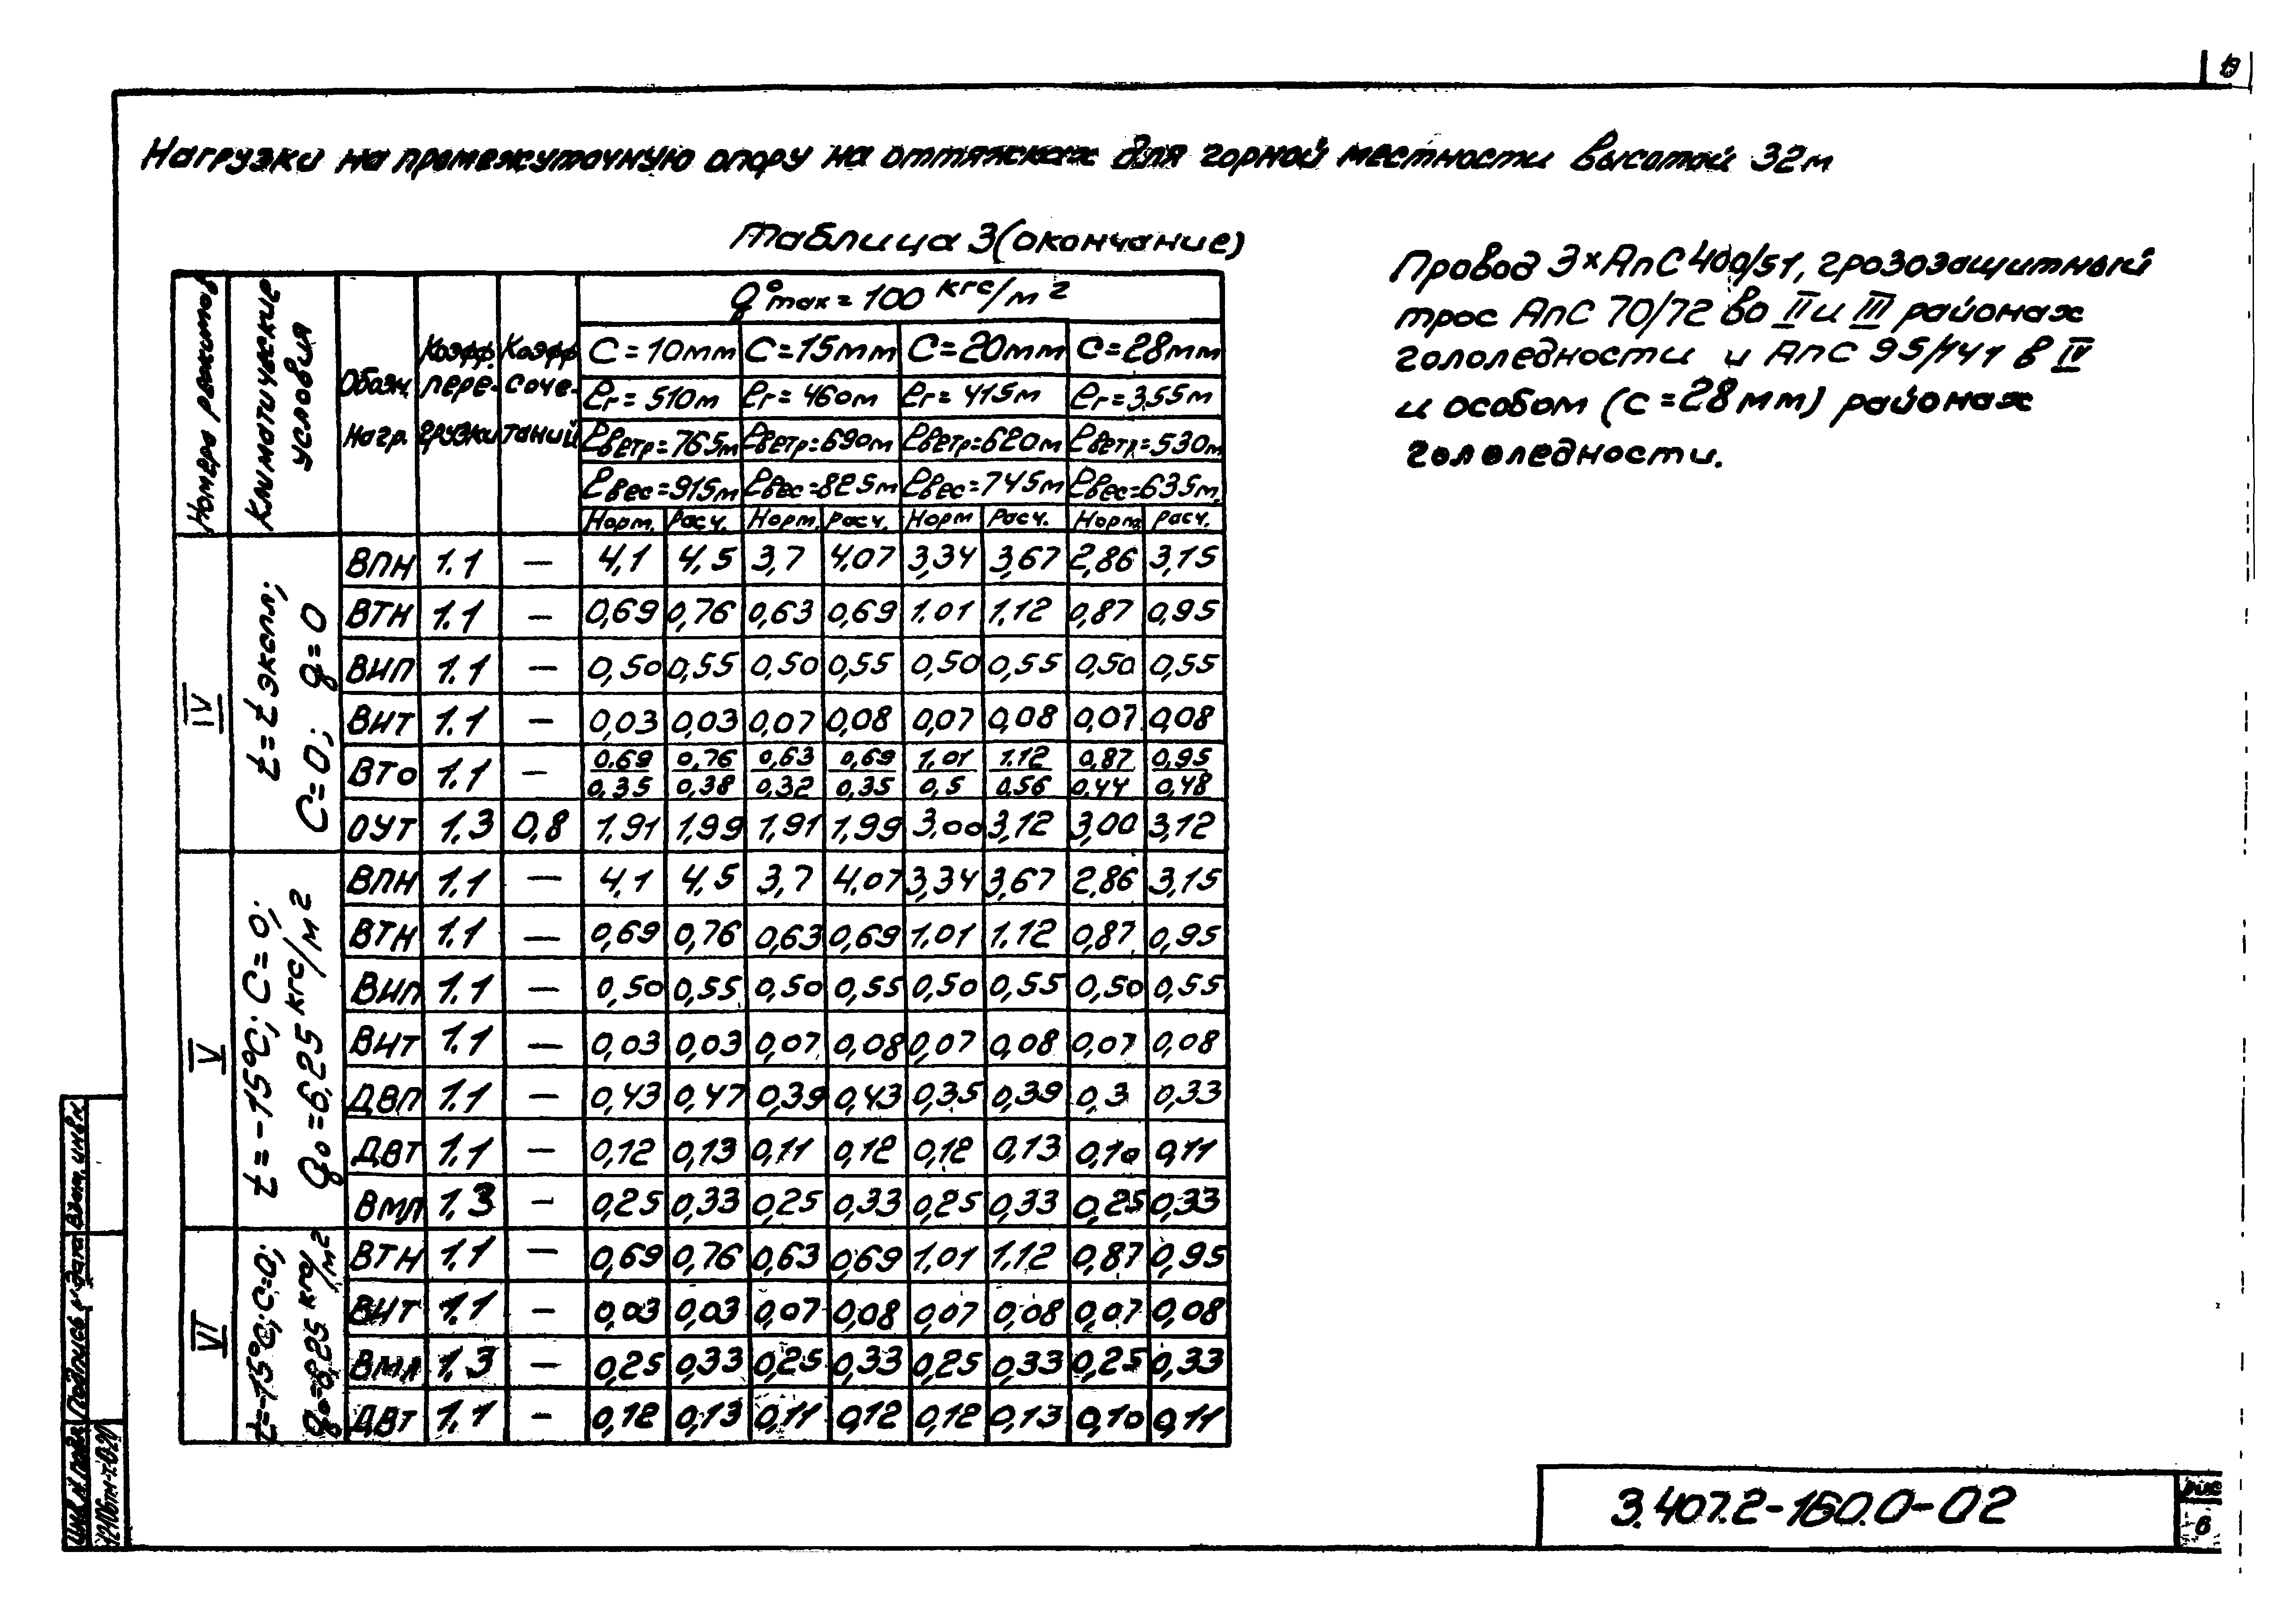 Нагрузки на промежуточную опору на оттяжках для горной местности высотой 32м
Таблица 3 (окончание)
Провод 3×АпС 400/51, грозозащитный
трос АпС 70/72 во II и III районах
гололедности и АпС 95/141 в IV
и особом (с=28мм) районах
гололедности.
Номера режимов | Климатические условия | Обозн. нагр. | Коэфф. пере- грузки | Коэфф соче- таний | q⁰max = 100 кгс/м²
C=10мм | C=15мм | C=20мм | C=28мм
ℓг=510м | ℓг=460м | ℓг=415м | ℓг=355м
ℓветр=765м | ℓветр=690м | ℓветр=620м | ℓветр=530м
ℓвес=915м | ℓвес=825м | ℓвес=745м | ℓвес=635м
Норм. | Расч. | Норм. | Расч. | Норм | Расч. | Норм. | Расч.
IV
t=t экспл;
C=0; q=0
ВПН | 1.1 | — | 4,1 | 4,5 | 3,7 | 4,07 | 3,34 | 3,67 | 2,86 | 3,15
ВТН | 1.1 | — | 0,69 | 0,76 | 0,63 | 0,69 | 1.01 | 1.12 | 0,87 | 0,95
ВИП | 1.1 | — | 0,50 | 0,55 | 0,50 | 0,55 | 0,50 | 0,55 | 0,50 | 0,55
ВИТ | 1.1 | — | 0,03 | 0,03 | 0,07 | 0,08 | 0,07 | 0,08 | 0,07 | 0,08
ВТо | 1.1 | — | 0.69/0.35 | 0,76/0,38 | 0,63/0,32 | 0,69/0,35 | 1,01/0,5 | 1.12/0.56 | 0,87/0.44 | 0,95/0,48
ОУТ | 1,3 | 0,8 | 1,91 | 1,99 | 1,91 | 1,99 | 3,00 | 3,12 | 3,00 | 3,12
V
t=-15°C; C=0;
q₀=6,25 кгс/м²
ВПН | 1.1 | — | 4,1 | 4,5 | 3,7 | 4,07 | 3,34 | 3,67 | 2,86 | 3,15
ВТН | 1.1 | — | 0,69 | 0,76 | 0,63 | 0,69 | 1,01 | 1.12 | 0,87 | 0,95
ВИП | 1.1 | — | 0,50 | 0,55 | 0,50 | 0,55 | 0,50 | 0,55 | 0,50 | 0,55
ВИТ | 1.1 | — | 0,03 | 0,03 | 0,07 | 0,08 | 0,07 | 0,08 | 0,07 | 0,08
ДВП | 1.1 | — | 0,43 | 0,47 | 0,39 | 0,43 | 0,35 | 0,39 | 0,3 | 0,33
ДВТ | 1.1 | — | 0,12 | 0,13 | 0,11 | 0,12 | 0,12 | 0,13 | 0,10 | 0,11
ВМЛ | 1,3 | — | 0,25 | 0,33 | 0,25 | 0,33 | 0,25 | 0,33 | 0,25 | 0,33
VI
t=-15°C; C=0;
q₀=6,25 кгс/м²
ВТН | 1.1 | — | 0,69 | 0,76 | 0,63 | 0,69 | 1,01 | 1.12 | 0,87 | 0,95
ВИТ | 1.1 | — | 0,03 | 0,03 | 0,07 | 0,08 | 0,07 | 0,08 | 0,07 | 0,08
ВМЛ | 1.3 | — | 0,25 | 0,33 | 0,25 | 0,33 | 0,25 | 0,33 | 0,25 | 0,33
ДВТ | 1.1 | — | 0,12 | 0,13 | 0,11 | 0,12 | 0,12 | 0,13 | 0,10 | 0,11
Инв. № подл. | Подпись и дата | Взам. инв. №
3.407.2-160.0-02
6